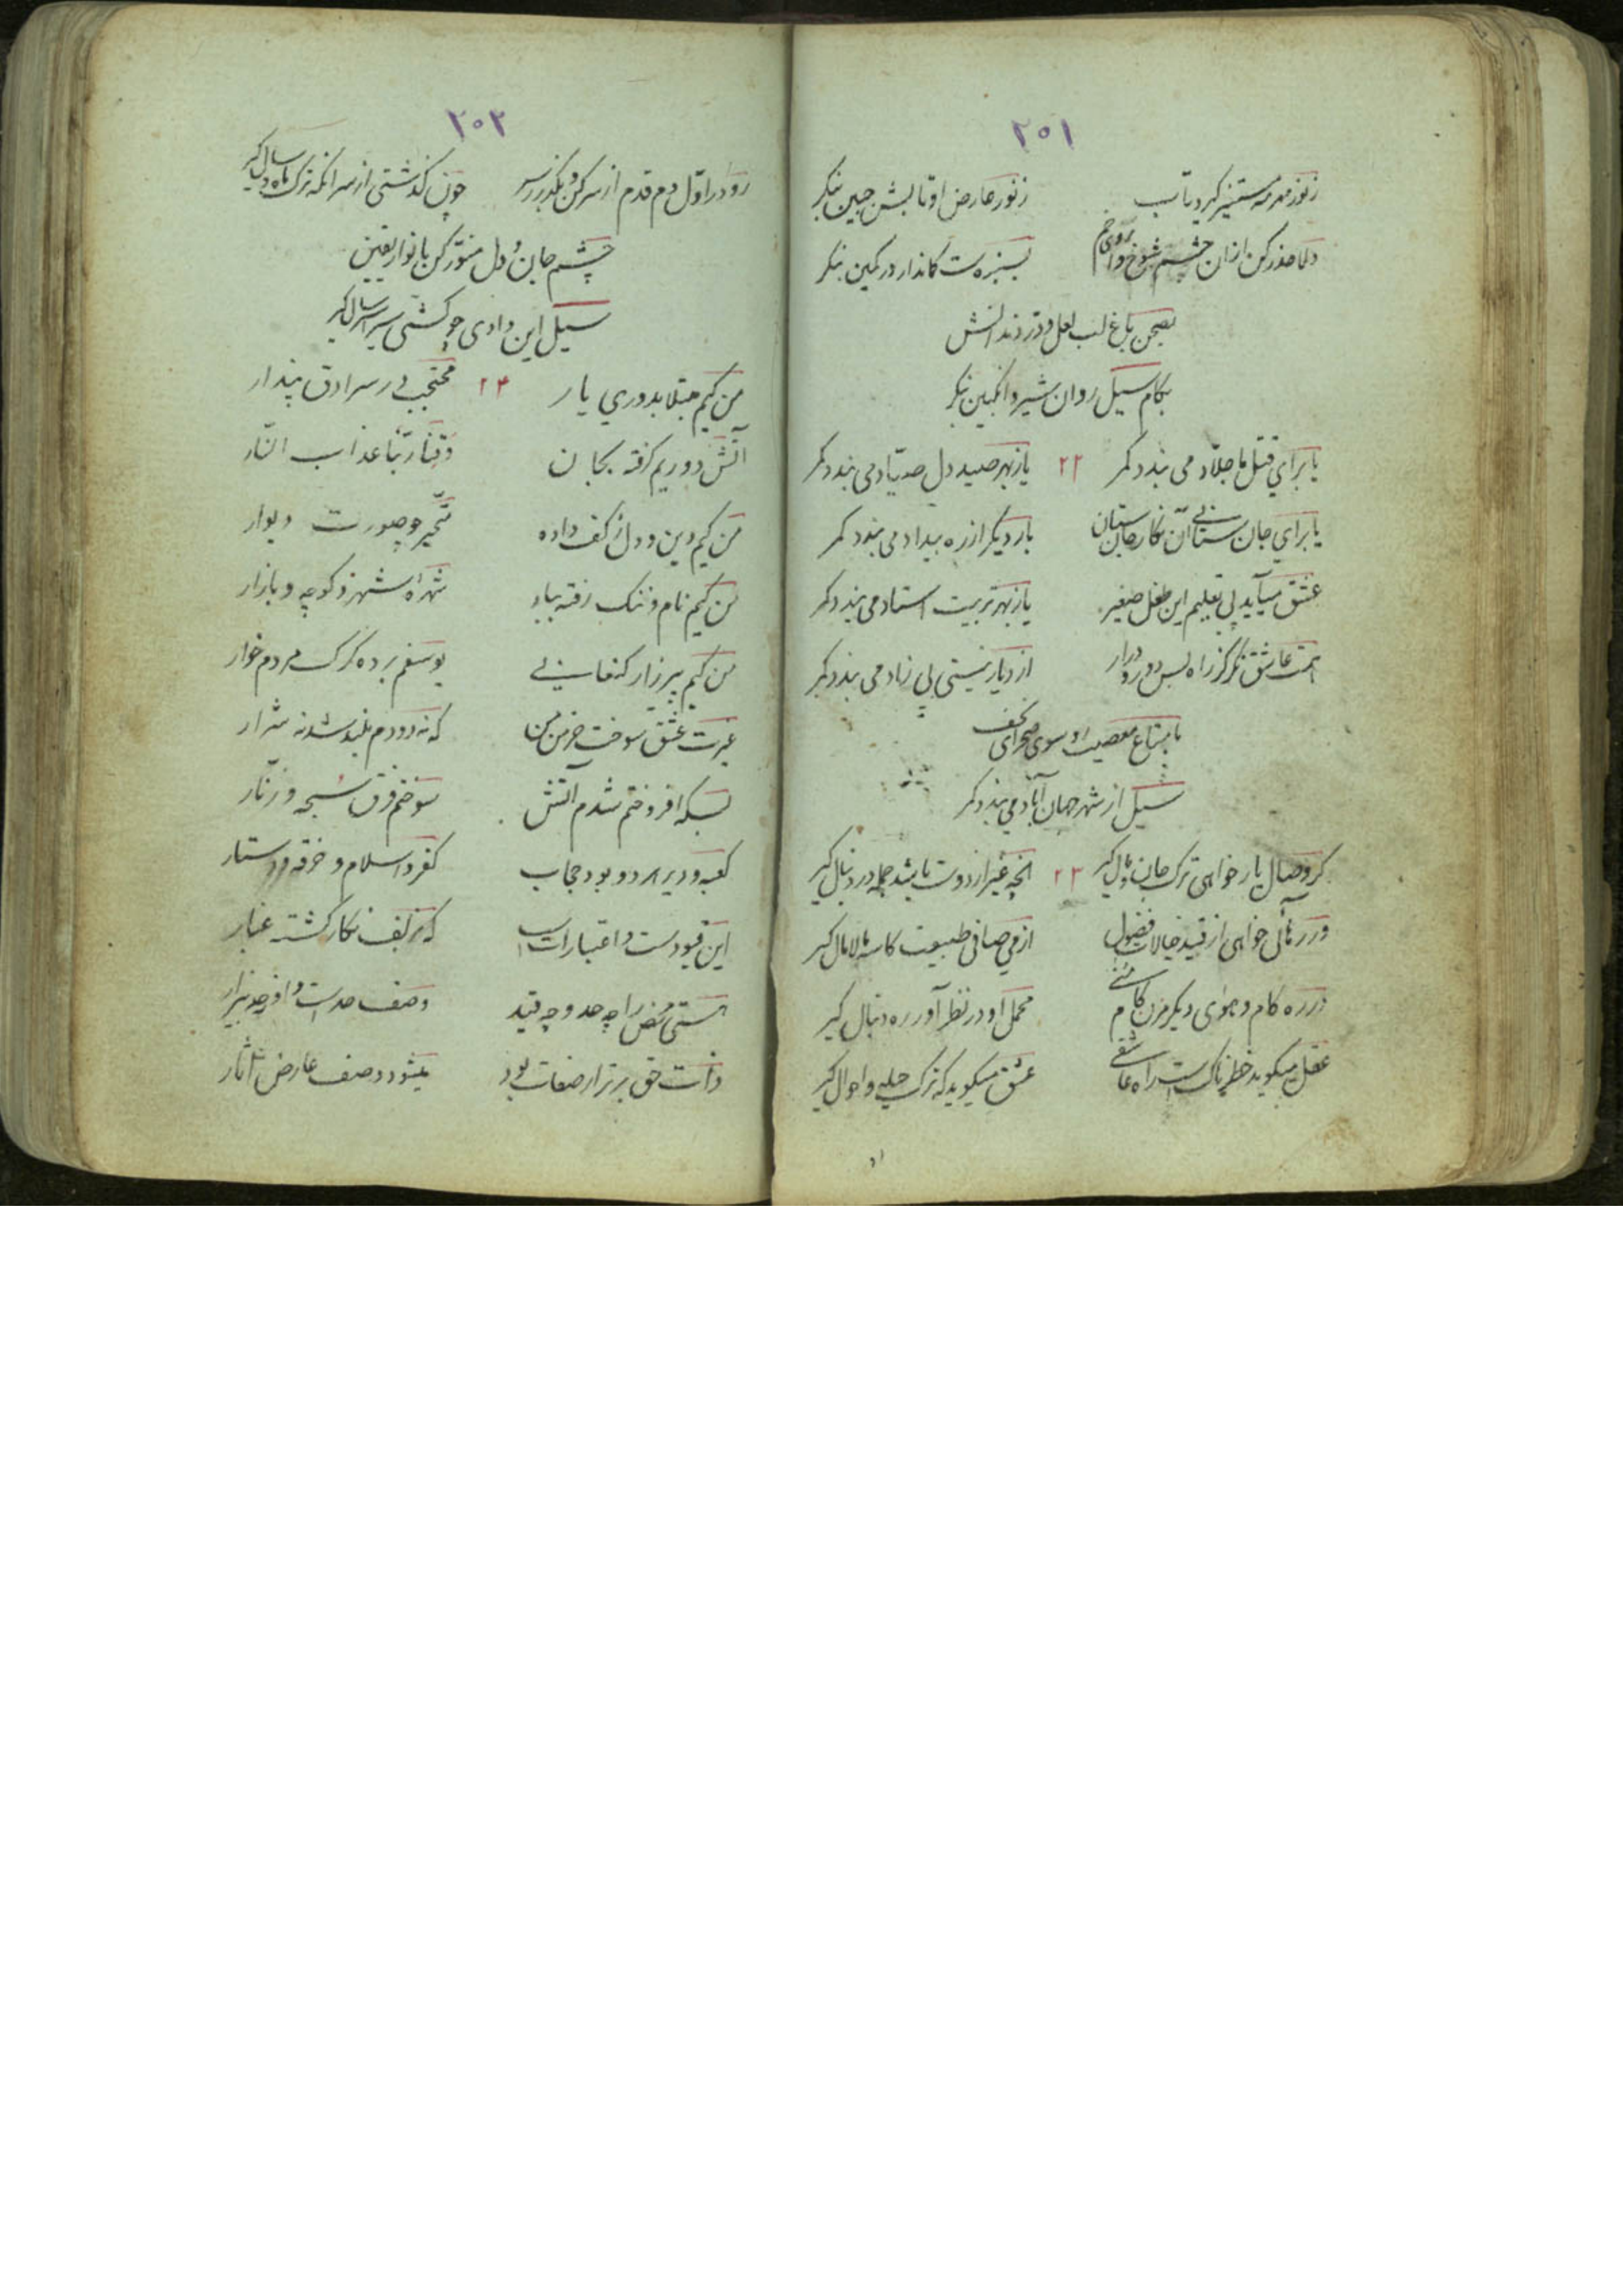 ۲۵۱
ز نور مهر مه مستنیر گیرد تاب ز نور عارض او تابش جبین بنگر
دلا حذر کن ازان چشم شوخ و ابروی خم بستیزه ست کماندار در کمین بنگر
بصحن باغ لب لعل و در دندانش
بکام سیل روان شیر و انگبین بنگر
یا برای قتل ما جلاد می بندد کمر ۲۲ یا ز بهر صید دل صیاد می بندد کمر
یا برای جان ستانی آن نگار جان ستان بار دیگر از ره بیداد می بندد کمر
عشق میآید پی تعلیم این طفل صغیر یا ز بهر تربیت استاد می بندد کمر
همت عاشق نگر کز راه بس دور و دراز از دیار نیستی بی زاد می بندد کمر
با متاع معصیت او سوی صحرای نجف
سیل از شهر جهان آباد می بندد کمر
گر وصال یار خواهی ترک جان و مال گیر ۲۳ آنچه غیر از دوست باشد جمله در دنبال گیر
ور رهائی خواهی از قید خیالات فضول از می صافی طبیعت کاسه مالامال گیر
در ره کام و هوای دیگر مزن گامی محمل او در نظر آور ره دنبال گیر
عقل میگوید خطرناک است راه عاشقی عشق میگوید که ترک حیله و احوال گیر
۲۵۲
رو در اول دم قدم از سر کن و بگذر ز سر چون گذشتی از سر آنگه ترک ماه و سال گیر
چشم جان و دل منور کن بانوار یقین
سیل این وادی چو گشتی سیر ابدال گیر
من کیم مبتلا بدوری یار ۲۴ محتجب در سرادق پندار
آتش دوریم گرفته بجان وقنا ربنا عذاب النار
من کیم دین و دل ز کف داده متحیر چو صورت دیوار
من کیم نام و ننگ رفته بباد شهره شهر و کوچه و بازار
من کیم پیر زار کنعانی یوسفم برده گرگ مردم خوار
غیرت عشق سوخت خرمن من که نه دودم بلند شد نه شرار
بسکه افروختم شدم آتش سوختم فرق سبحه و زنار
کعبه و دیر هر دو بود حجاب کفر و اسلام و خرقه و دستار
این قیودست و اعتبارات است که ز زلف نگار گشته غبار
هستی محض را چه حد و چه قید وصف حد است و او ز حد بیزار
ذات حق برتر از صفات بود میشود وصف عارض آثار